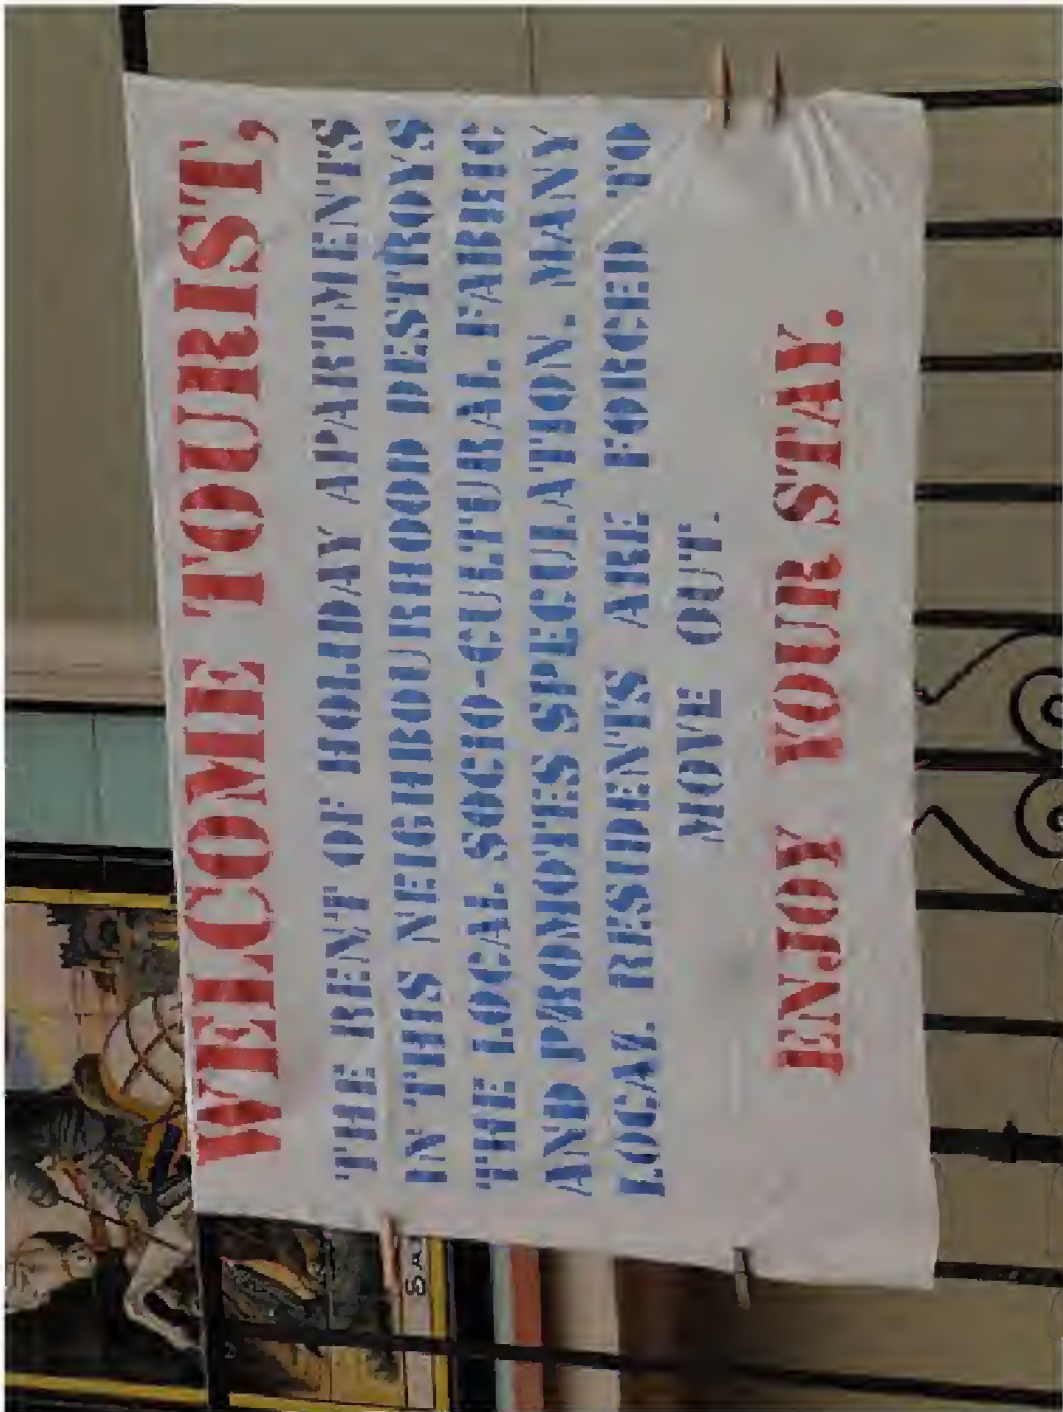 WELCOME TOURIST,
THE RENT OF HOLIDAY APARTMENTS
IN THIS NEIGHBOURHOOD DESTROYS
THE LOCAL SOCIO-CULTURAL FABRIC
AND PROMOTES SPECULATION. MANY
LOCAL RESIDENTS ARE FORCED TO
MOVE OUT.
ENJOY YOUR STAY.
SA